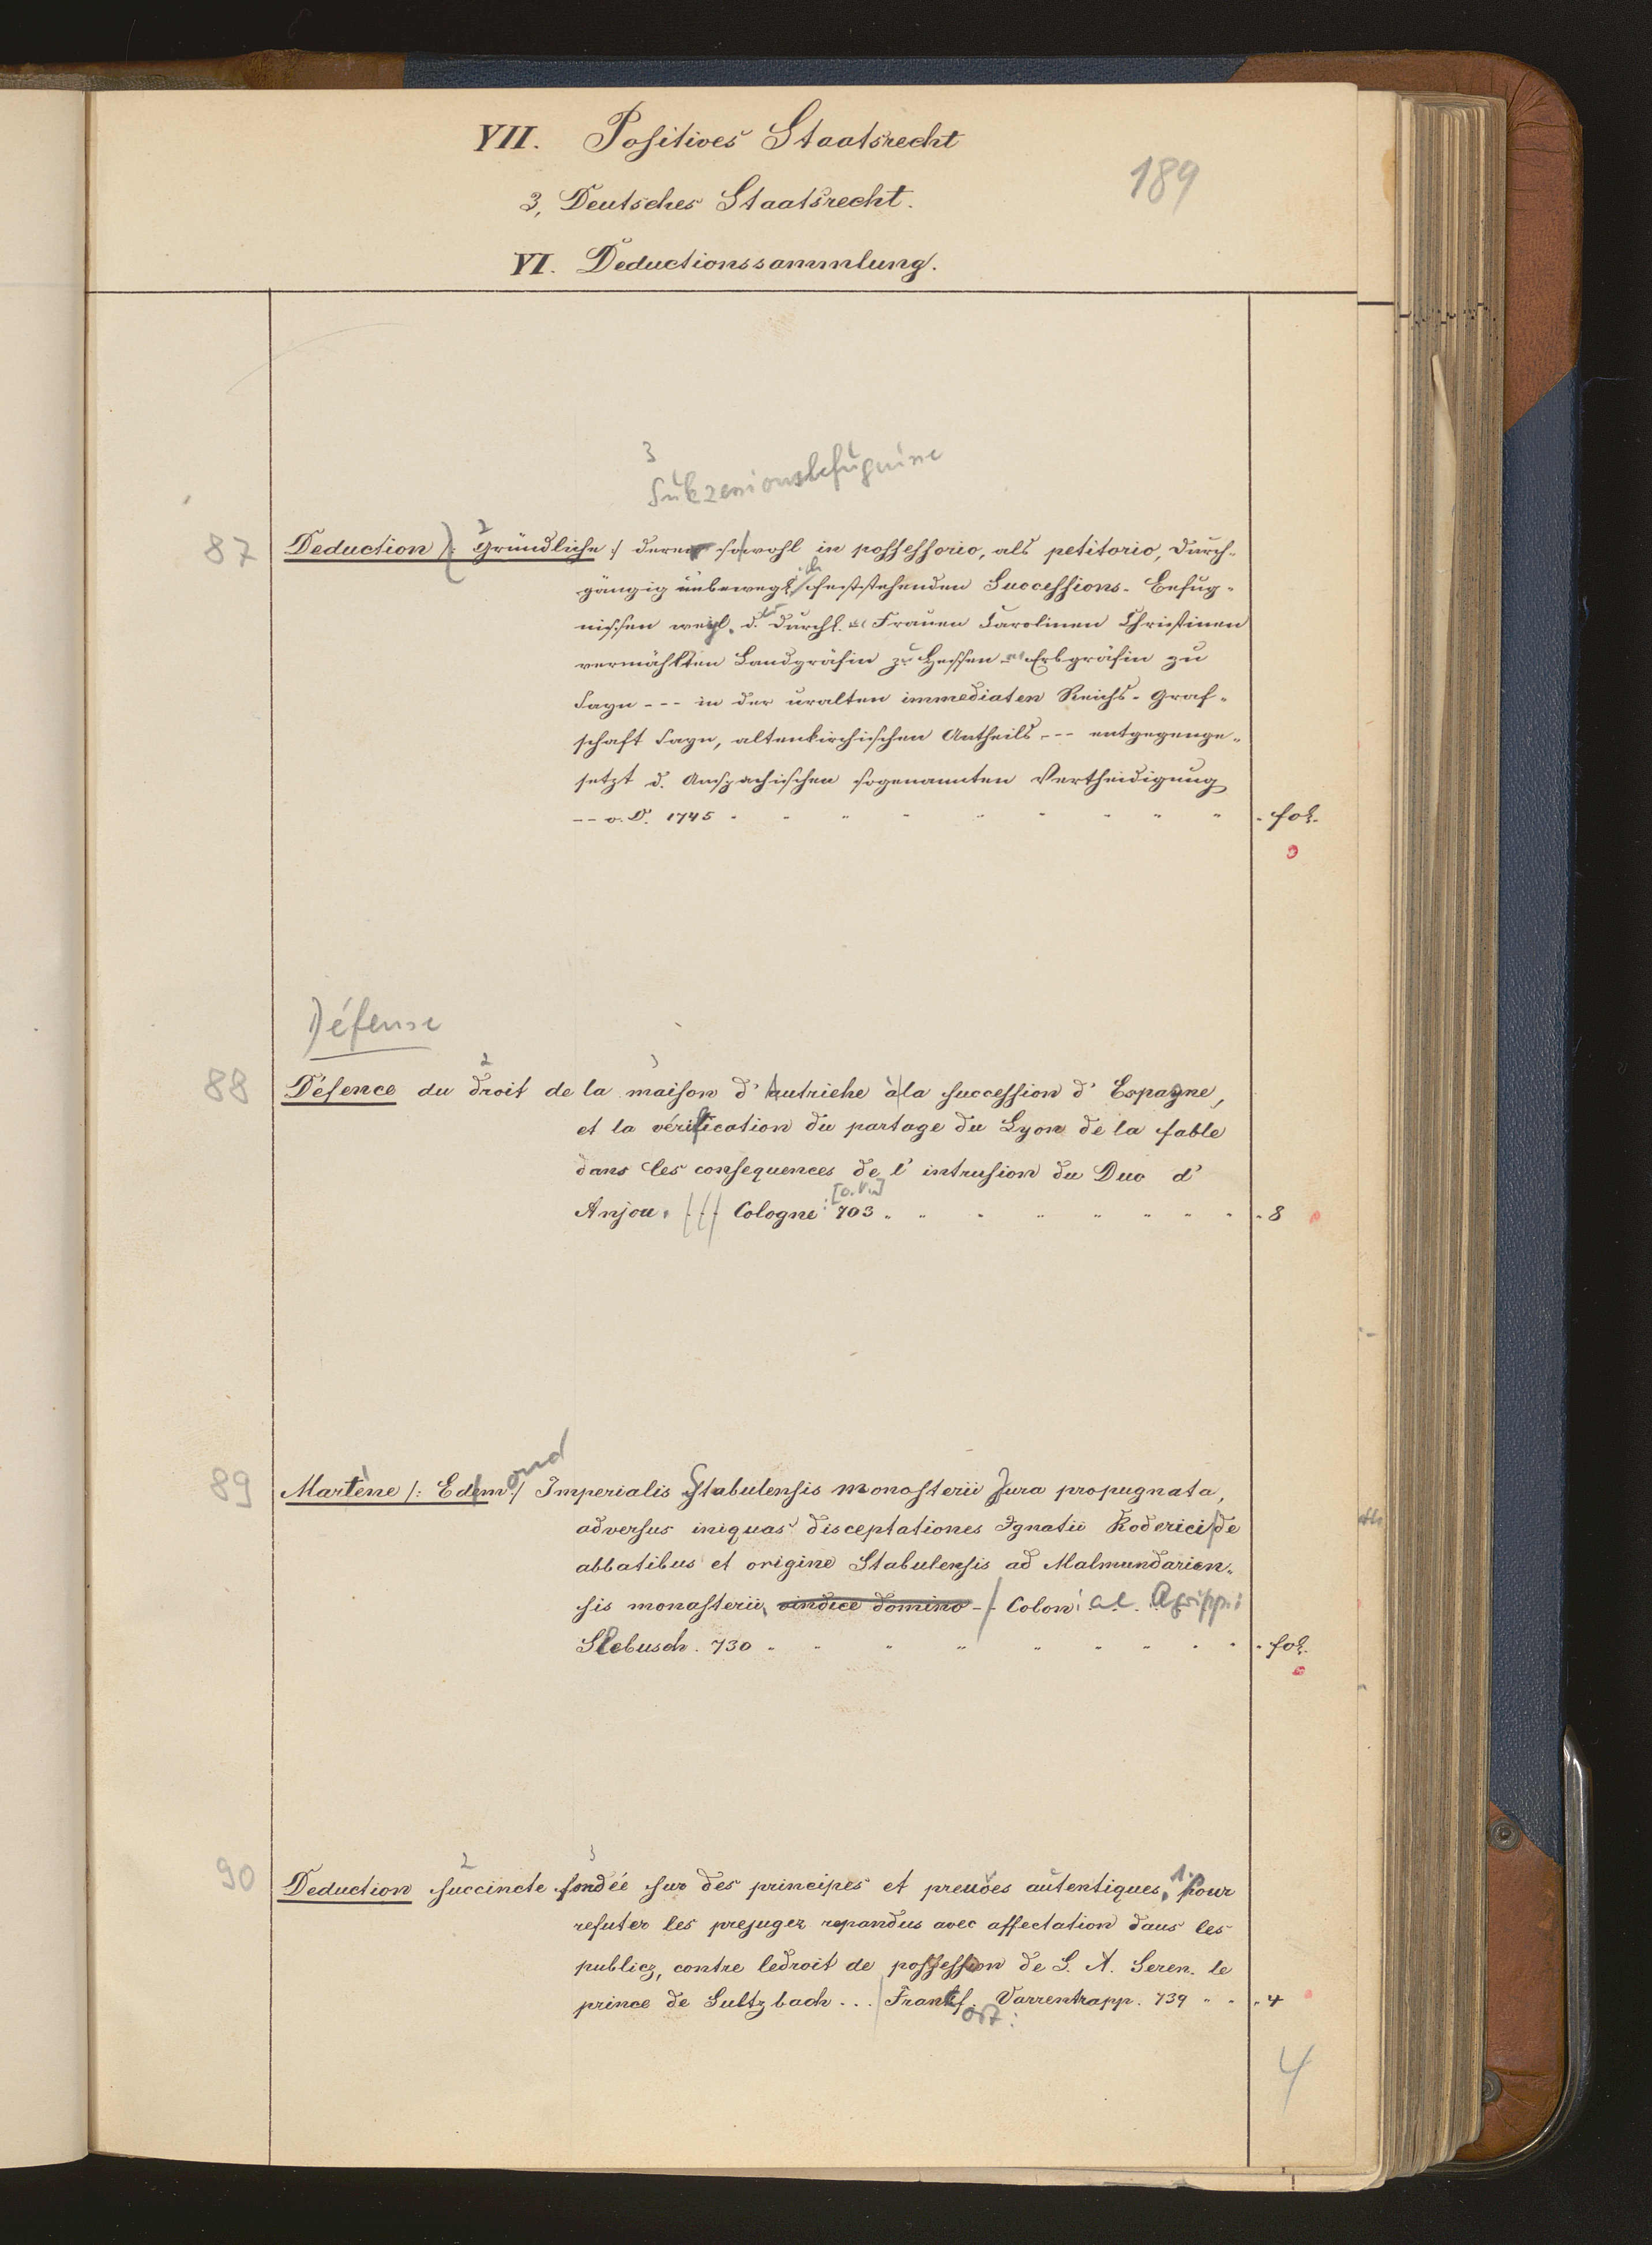 VII. Positives Staatsrecht
189
3, Deutsches Staatsrecht.
VI. Deductionssammlung.
3
Sukzessionsbefugnisse
2
87 Deduction /: Gründliche :/ derer sowohl in possessorio, als petitorio, durch-
gängig unbeweglich feststehenden Successions-Befug-
nissen weyl. d. Durchl. Frauen Carolinen Christinen
vermählten Landgräfin zu Hessen Erbgräfin zu
Sayn --- in der uralten immediaten Reichs-Graf-
schaft Sayn, altenkirchischen Antheils --- entgegenge-
setzt d. Anspachischen sogenannten Vertheidigung
-- o. D. 1745 fol.
Défense
2 3
88 Défence du droit de la maison d'Autriche à la succession d'Espagne,
et la vérification du partage du Lyon de la fable
dans les consequences de l'intrusion du Duc d'
[o. V.]
Anjou. Cologne: 703 8
ond
89 Martène /: Edm :/ Imperialis Stabulensis monasterii Jura propugnata,
adversus iniquas disceptationes Ignatii Roderici de
abbatibus et origine Stabulensis ad Malmundarien-
sis monasterii, vindice domino - Colon: al. Agripp:
Slebusch. 730 fol.
2 3 1
90 Deduction succincte fondée sur des principes et preuves autentiques, Pour
refuter les prejugez repandus avec affectation dans les
publicz, contre ledroit de possession de S. A. Seren. le
prince de Sultzbach... Frankf. Varrentrapp. 739 4
ort:
4